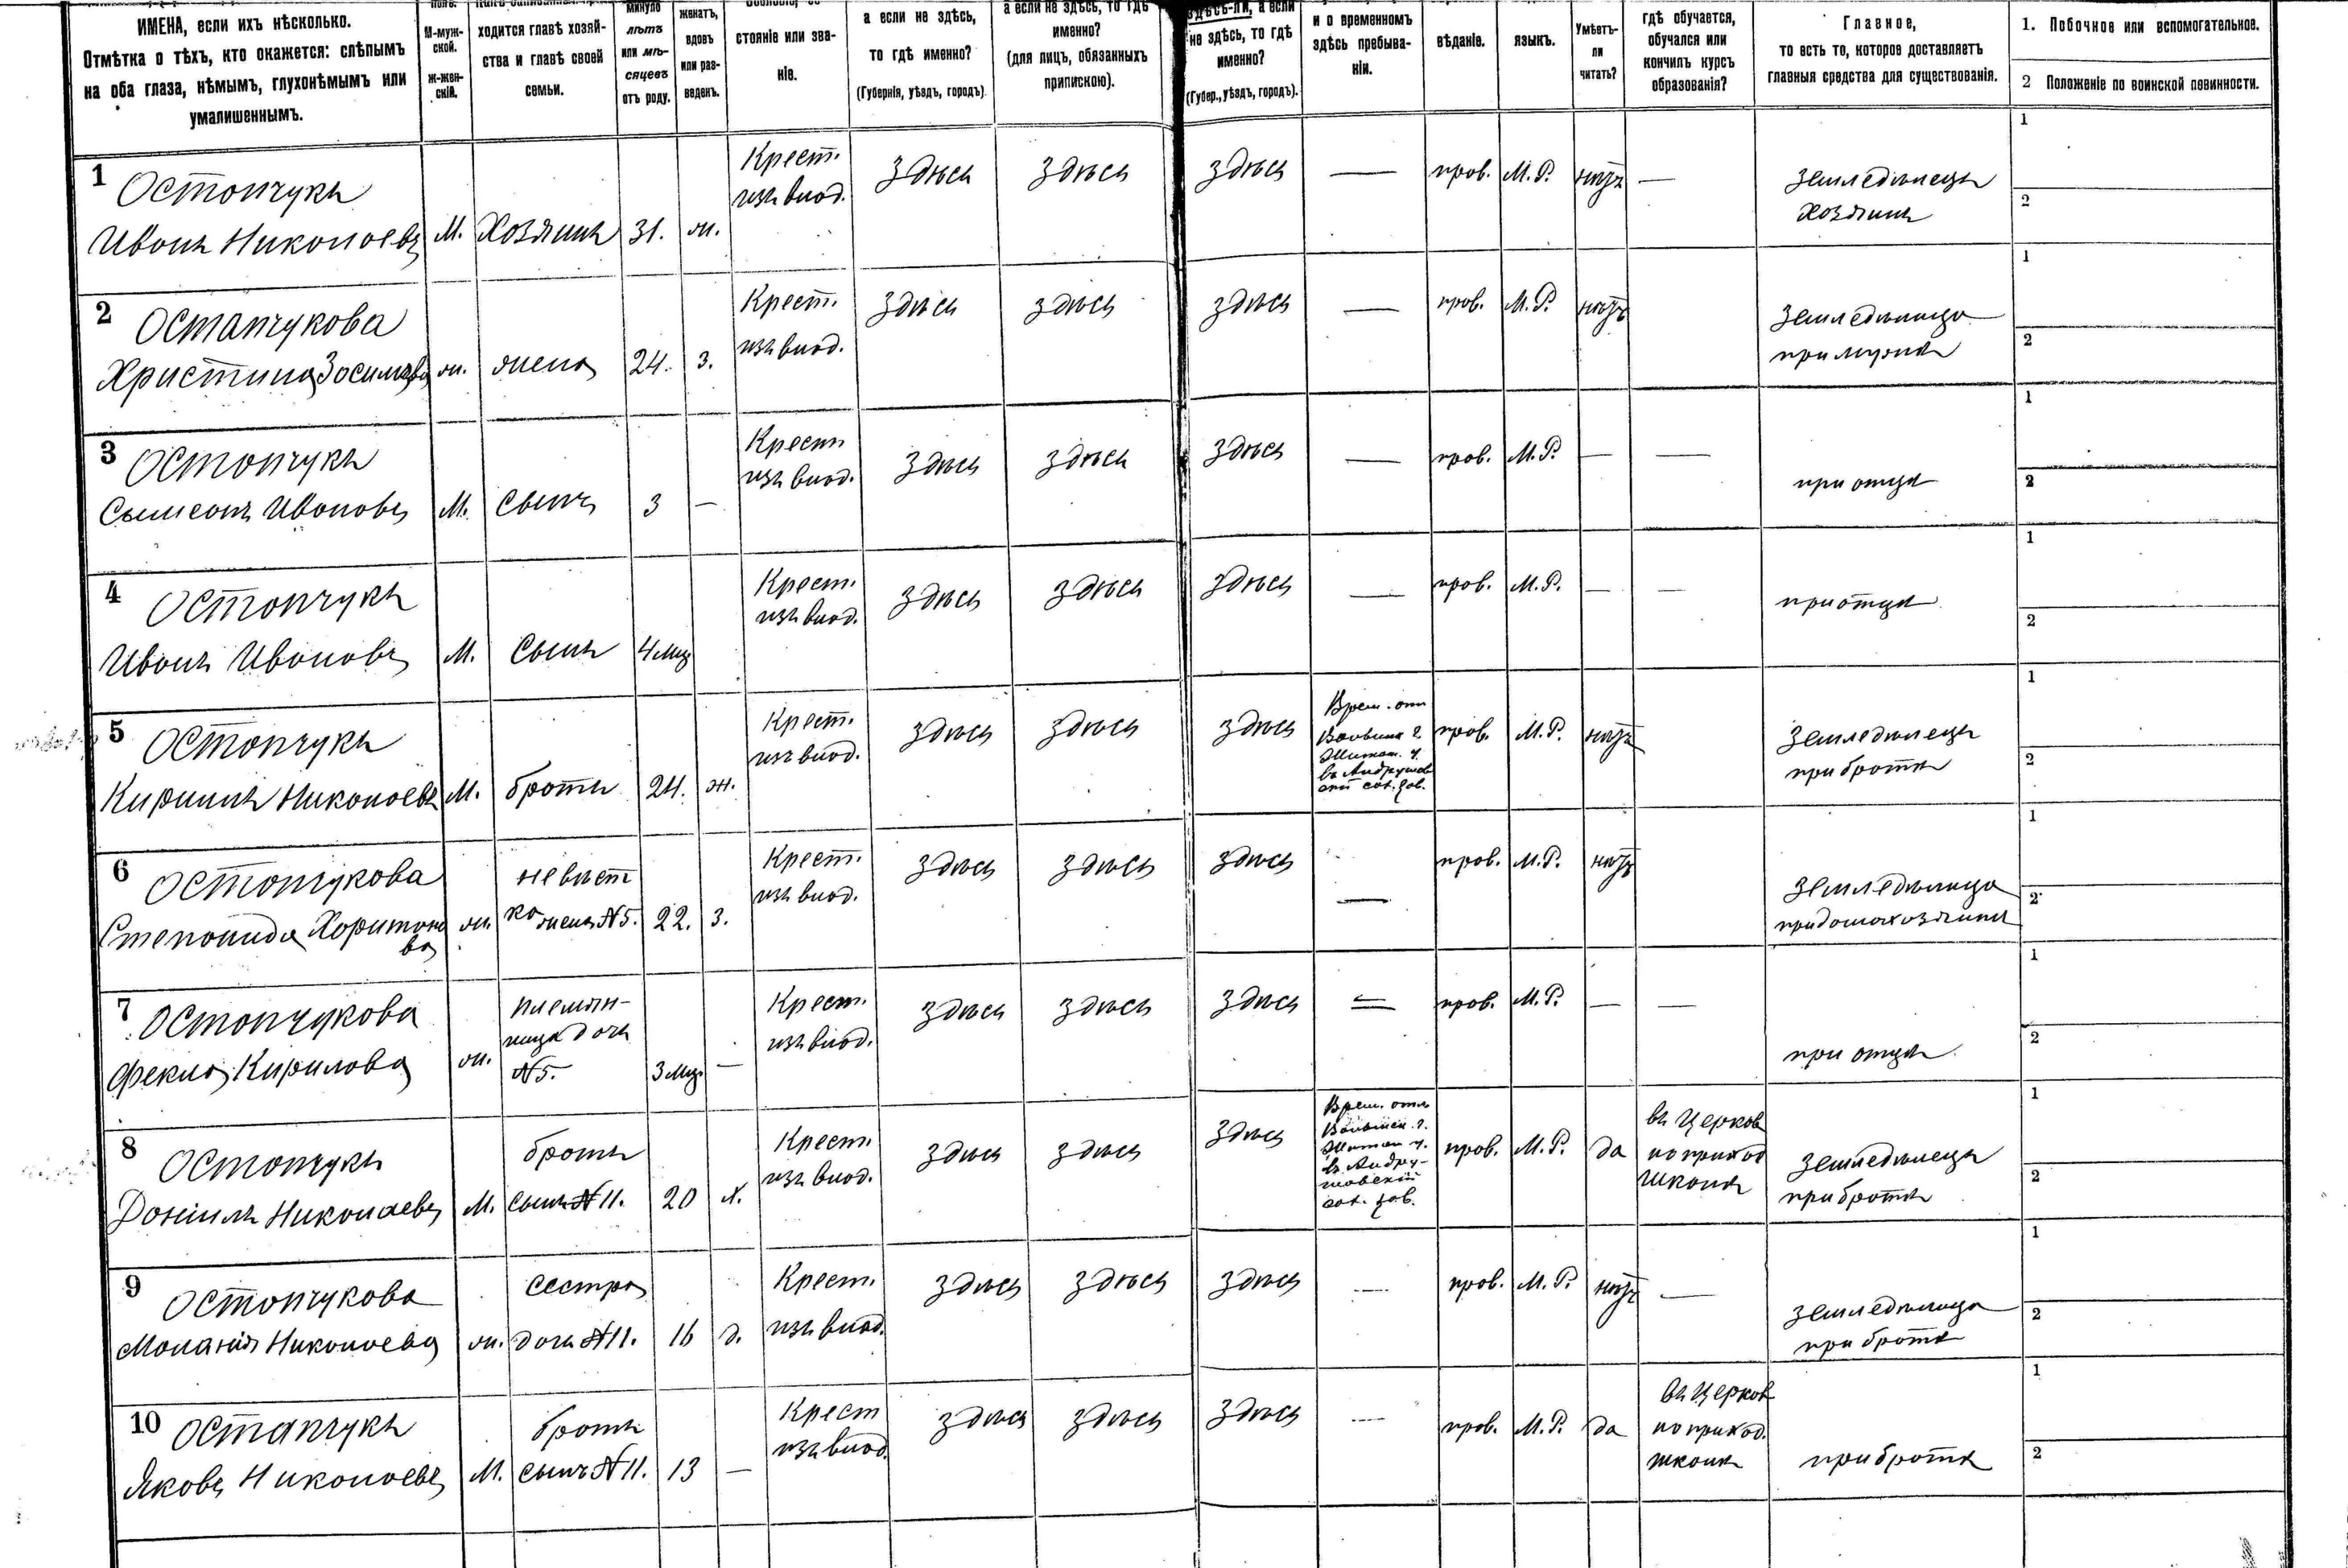 ИМЕНА, если ихъ нѣсколько.
Отмѣтка о тѣхъ, кто окажется: слѣпымъ
на оба глаза, нѣмымъ, глухонѣмымъ или
умалишеннымъ.
М-муж-
ской.
Ж-жен-
скій.
ходится главѣ хозяй-
ства и главѣ своей
семьи.
минуло
лѣтъ
или мѣ-
сяцевъ
отъ роду.
женатъ,
вдовъ
или раз-
веденъ.
стояніе или зва-
ніе.
а если не здѣсь,
то гдѣ именно?
(Губернія, уѣздъ, городъ)
а если не здѣсь, то гдѣ
именно?
(для лицъ, обязанныхъ
припискою).
здѣсь-ли, а если
не здѣсь, то гдѣ
именно?
(Губер., уѣздъ, городъ).
и о временномъ
здѣсь пребыва-
ніи.
вѣданіе.
языкъ.
Умѣетъ-
ли
читать?
гдѣ обучается,
обучался или
кончилъ курсъ
образованія?
Главное,
то есть то, которое доставляетъ
главныя средства для существованія.
1. Побочное или вспомогательное.
2 Положеніе по воинской повинности.
1
Остапчукъ
Иванъ Николаевъ
М.
Хозяинъ
31.
ж.
Крест.
изъ влад.
здѣсь
здѣсь
здѣсь
—
прав.
М.Р.
нѣтъ
—
Земледѣлецъ
Хозяинъ
1
2
2
Остапчукова
Христина Зосимова
ж.
жена
24.
з.
Крест.
изъ влад.
здѣсь
здѣсь
здѣсь
—
прав.
М.Р.
нѣтъ
Земледѣлица
при мужѣ
1
2
3
Остапчукъ
Сымеонъ Ивановъ
М.
сынъ
3
—
Крест
изъ влад.
здѣсь
здѣсь
здѣсь
—
прав.
М.Р.
—
—
при отцѣ
1
2
4
Остапчукъ
Иванъ Ивановъ
М.
сынъ
4 мѣс
Крест.
изъ влад.
здѣсь
здѣсь
здѣсь
—
прав.
М.Р.
—
—
при отцѣ
1
2
5
Остапчукъ
Кирилъ Николаевъ
М.
братъ
24.
ж.
Крест.
изъ влад.
здѣсь
здѣсь
здѣсь
Врем. отл
Волынск г.
Житом. у.
въ Андрушов
ск. сах. зав.
прав.
М.Р.
нѣтъ
Земледѣлецъ
при братѣ
1
2
6
Остапчукова
Степанида Харитоно
ва
ж.
невѣст
ка жена N5.
22.
з.
Крест.
изъ влад.
здѣсь
здѣсь
здѣсь
—
прав.
М.Р.
нѣтъ
Земледѣлица
при домохозяинѣ
1
2
7
Остапчукова
Фекла Кирилова
ж.
племян-
ница дочь
N5.
3 мѣс
—
Крест.
изъ влад.
здѣсь
здѣсь
здѣсь
—
прав.
М.Р.
—
—
при отцѣ
1
2
8
Остапчукъ
Даніилъ Николаевъ
М.
братъ
сынъ N11.
20
х.
Крест.
изъ влад.
здѣсь
здѣсь
здѣсь
Врем. отл
Волынск. г.
Житом у.
въ Андру-
шовскій
сах. зав.
прав.
М.Р.
да
въ Церков
но приход
школѣ
Земледѣлецъ
при братѣ
1
2
9
Остапчукова
Маланія Николаева
ж.
сестра
дочь N11.
16
д.
Крест.
изъ влад.
здѣсь
здѣсь
здѣсь
—
прав.
М.Р.
нѣтъ
—
Земледѣлица
при братѣ
1
2
10
Остапчукъ
Яковъ Николаевъ
М.
братъ
сынъ N11.
13
—
Крест
изъ влад.
здѣсь
здѣсь
здѣсь
—
прав.
М.Р.
да
въ Церков
но приход.
школѣ
при братѣ
1
2